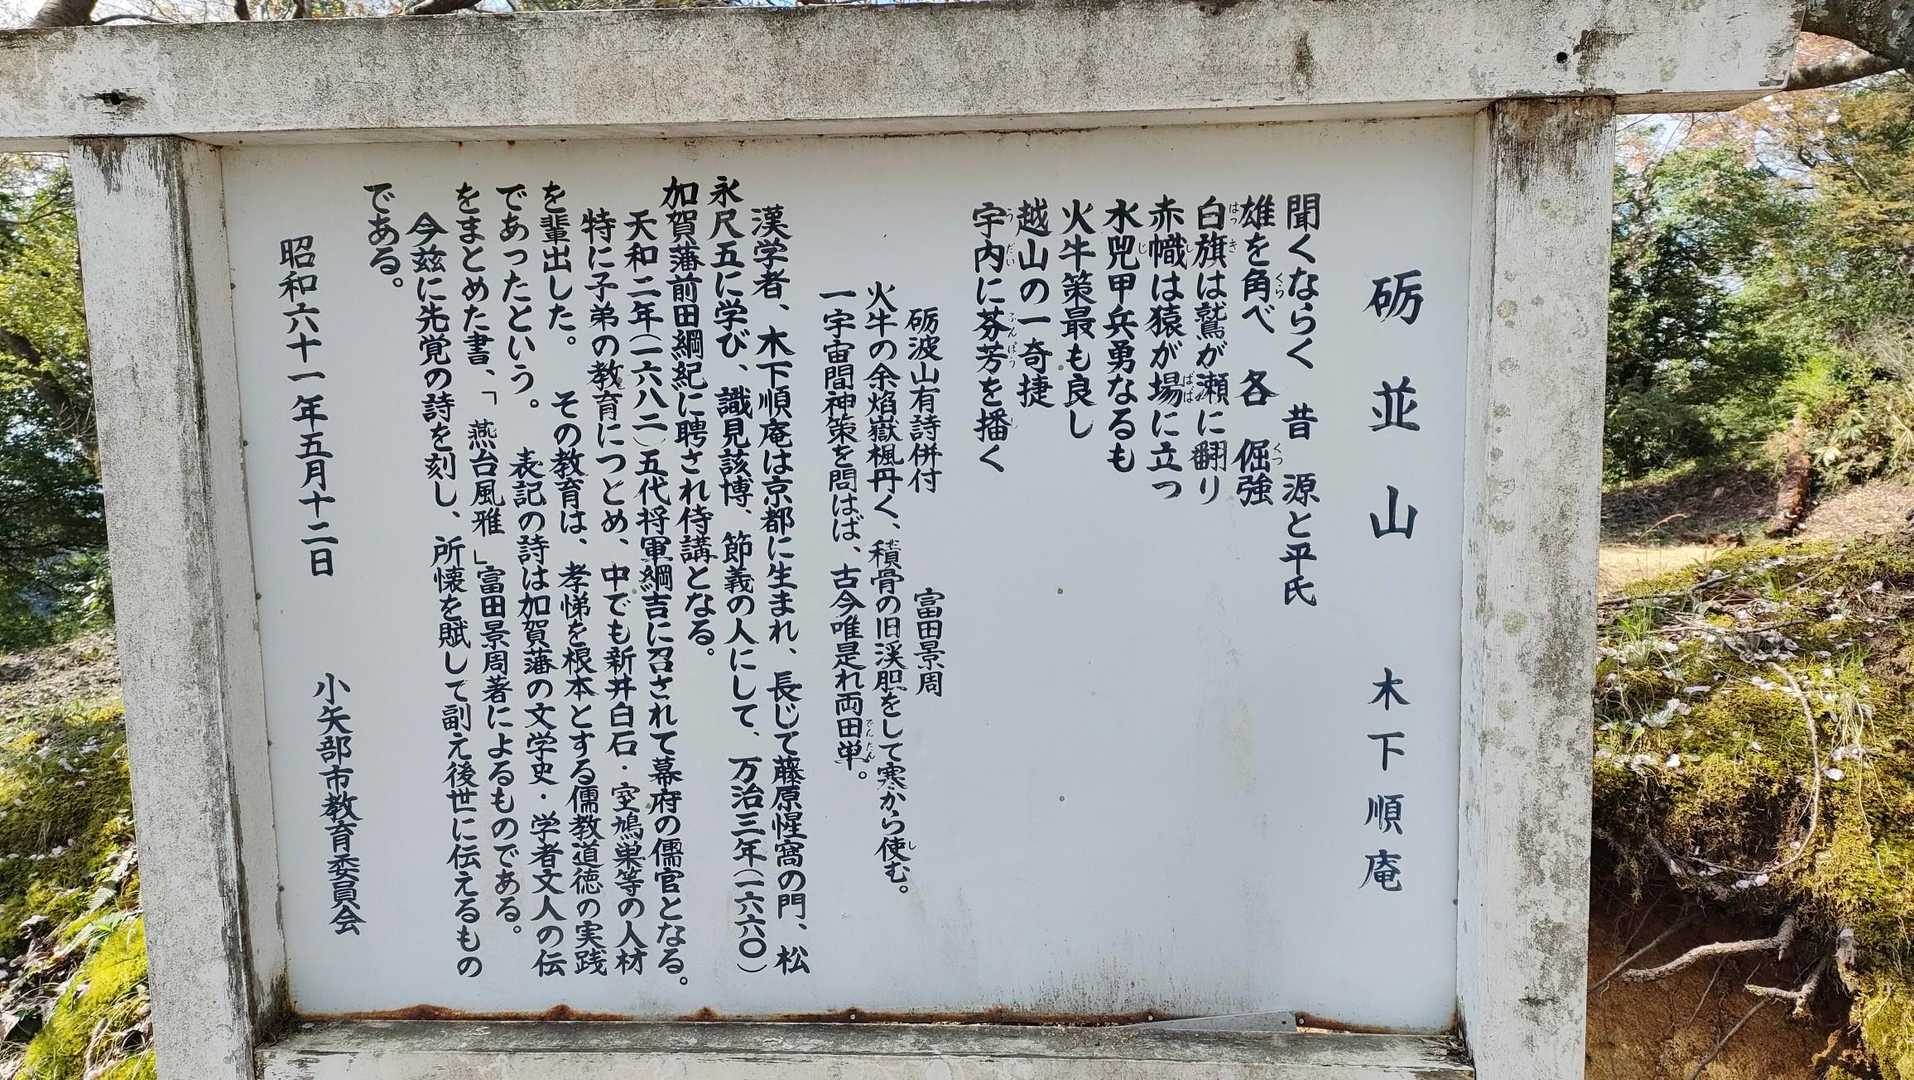 砺並山　木下順庵
聞くならく　昔　源と平氏
雄を角べ　各　倔強
白旗は鷲が瀬に翻り
赤幟は猿が場に立つ
水兕甲兵勇なるも
火牛策最も良し
越山の一奇捷
宇内に芬芳を播く
砺波山有詩併付　富田景周
火牛の余焰嶽楓丹く、積骨の旧渓胆をして寒から使む。
一宇宙間神策を問はば、古今唯是れ両田単。
漢学者、木下順庵は京都に生まれ、長じて藤原惺窩の門、松
永尺五に学び、識見該博、節義の人にして、万治三年(一六六〇)
加賀藩前田綱紀に聘され侍講となる。
天和二年(一六八二)五代将軍綱吉に召されて幕府の儒官となる。
特に子弟の教育につとめ、中でも新井白石・室鳩巣等の人材
を輩出した。　その教育は、孝悌を根本とする儒教道徳の実践
であったという。　表記の詩は加賀藩の文学史・学者文人の伝
をまとめた書、「燕台風雅」富田景周著によるものである。
今玆に先覚の詩を刻し、所懐を賦して副え後世に伝えるもの
である。
昭和六十一年五月十二日　小矢部市教育委員会